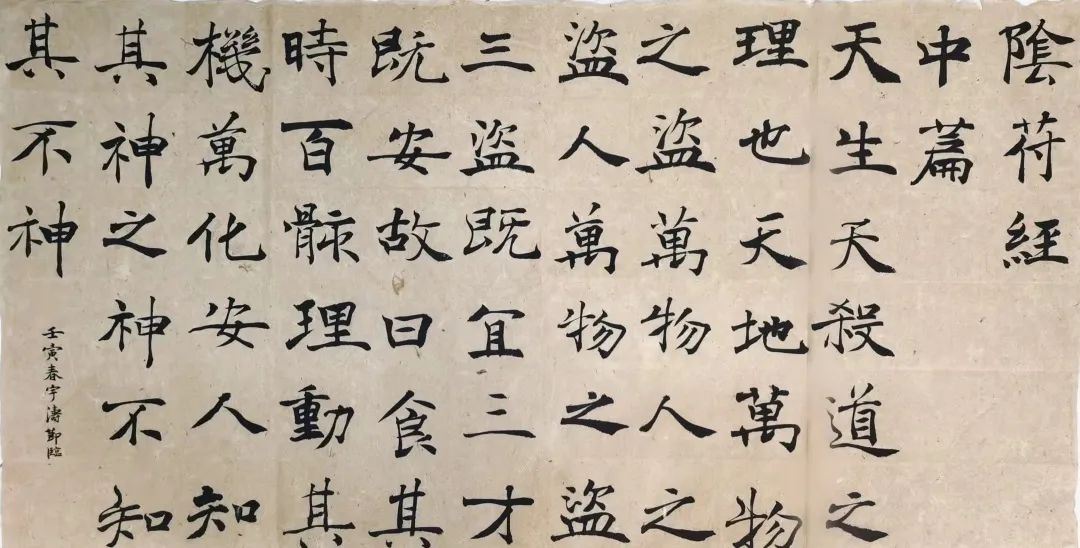 陰符經
中篇
天生天殺道之
理也天地萬物
之盜萬物人之
盜人萬物之盜
三盜既宜三才
既安故曰食其
時百骸理動其
機萬化安人知
其神之神不知
其不神
壬寅春宇濤節臨